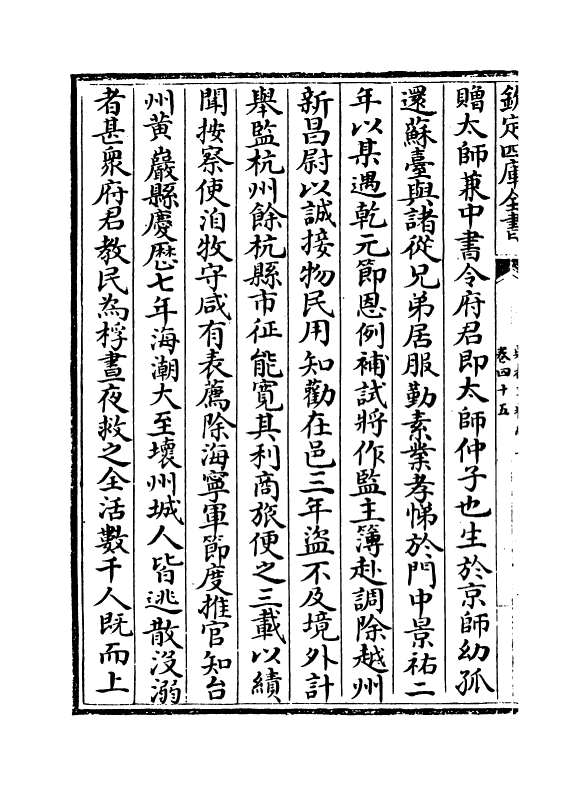 欽定四庫全書
卷四十五
贈太師兼中書令府君即太師仲子也生於京師幼孤
還蘇臺與諸從兄弟居服勤素業孝悌於門中景祐二
年以某遇乾元節恩例補試將作監主簿赴調除越州
新昌尉以誠接物民用知勸在邑三年盜不及境外計
舉監杭州餘杭縣市征能寛其利商旅便之三載以績
聞按察使洎牧守咸有表薦除海寧軍節度推官知台
州黄巖縣慶厯七年海潮大至壊州城人皆逃散没溺
者甚衆府君教民為桴晝夜救之全活數千人既而上